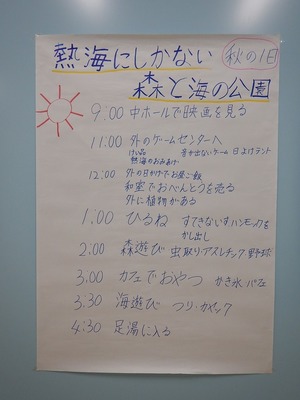 熱海にしかない
秋の1日
森と海の公園
9:00 中ホールで映画を見る
11:00 外のゲームセンターへ
けい品 音が出ないゲーム 日よけテント
熱海のおみあげ
12:00 外の日かげでお昼ご飯
和室でおべんとうを売る
外に植物がある
1:00 ひるね すてきないす,ハンモックを
かし出し
2:00 森遊び 虫取り・アスレチック 野球
3.00 カフェでおやつ かき氷 パフェ
3.30 海遊び つり・カヤック
4:30 足湯に入る